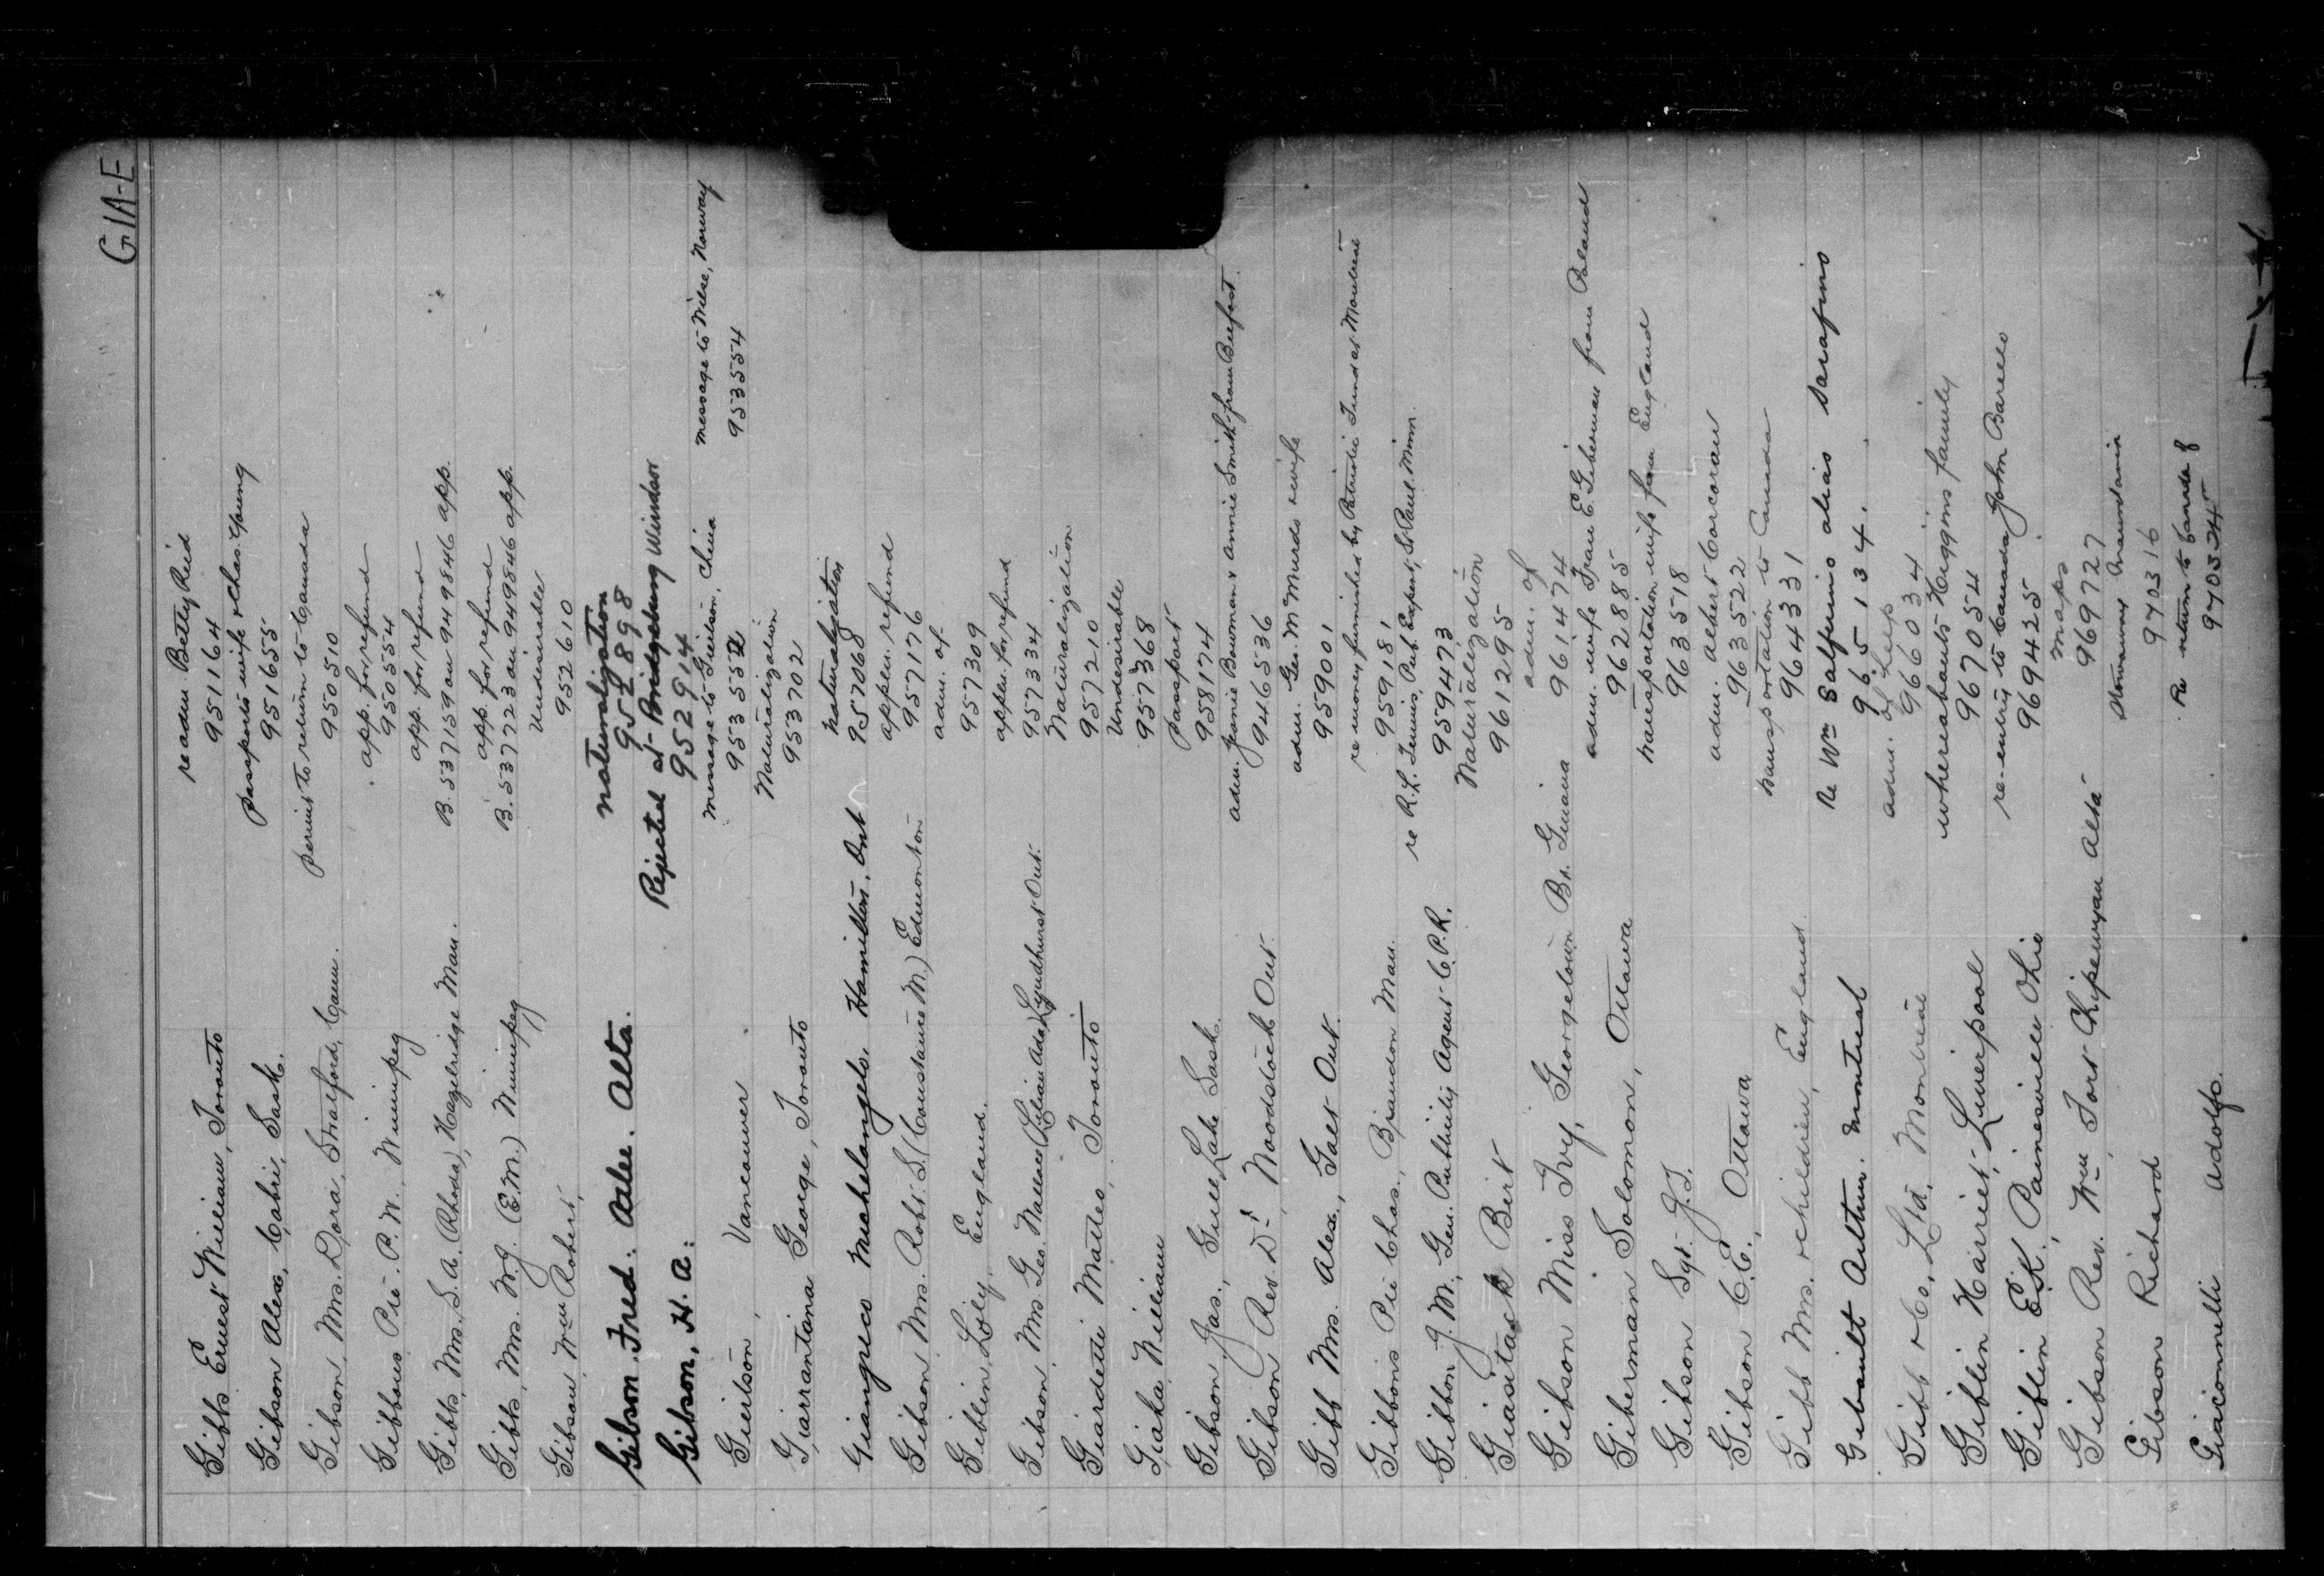 GIA-E
Gibbs Ernest William, Toronto re adm Betty Reid
951164
Gibson Alex, Cabri, Sask. passports wife & Chas. Young
951655
Gibson, Mrs. Dora, Stratford, Conn. permit to return to Canada
950510
Gibbons Pte. P. W. Winnipeg app. for refund
950554
Gibbs, Mrs. S. A. (Rhoda), Hazelridge Man. app. for refund
B. 537159 on 949846 app.
Gibbs, Mrs. W. J. (E.M.) Winnipeg app. for refund
B. 537723 on 949846 app.
Gibson, Wm Robert, Undesirable
952610
Gibson Fred. Alta. naturalization
952898
Gibson, H. A. Rejected at Bridgeburg Windsor
952914
Gieilson, Vancouver message to Gieilson, China message to Nilse, Norway
953552 953554
Giarrantana George, Toronto Naturalization
953702
Giangreco Michelangelo Hamilton, Ont naturalization
957068
Gibson Mrs. Robt. S. (Constance M.) Edmonton appln. refund
957176
Giblin, Loily, England. adm. of
957309
Gibson, Mrs Geo. Wallace (Lilian Ada) Lyndhurst Ont. appln. for refund
957334
Giardetti Matteo, Toronto Naturalization
957210
Giaka William Undesirable
957368
Gibson, Jas., Gull Lake Sask. Passport
958174
Gibson Rev Dr, Woodstock Ont. adm. Jennie Bowman & Annie Smith from Belfast
946536
Gibb Mrs. Alex, Galt Ont. adm. Geo. McMurdo & wife
959001
Gibbons Pte Chas., Brandon Man. re money furnished by Patriotic Fund at Montreal
959181
Gibbon J. M. Gen. Publicity Agent C.P.R. re R. L. Lewis, Pub. Expert, St. Paul, Minn.
959473
Giasitack Bert Naturalization
961295
Gibson Miss Ivy, Georgetown Br. Guiana adm. of
961474
Giberman Solomon, Ottawa adm. wife Fran E. Giberman from Poland
962885
Gibson Sgt. J. J. transportation wife from England
963518
Gibson C. E., Ottawa adm. Albert Corcoran
963522
Gibb Mrs. & children, England transportation to Canada
964331
Gibault Arthur. Montreal re Wm Salferino alias Sarafino
965134.
Gibb & Co. Ltd. Montreal adm. of help
966034
Giblin Harriet, Liverpool whereabouts Higgins family
967054
Giblin E. K., Painesville Ohio re-entry to Canada John Barello
969425
Gibson Rev. Wm Fort Chipewyan Alta maps
969727
Gibson Richard Stowaway Mauretania
970316
Giaconnelli Adolfo. Re return to Canada of
970324